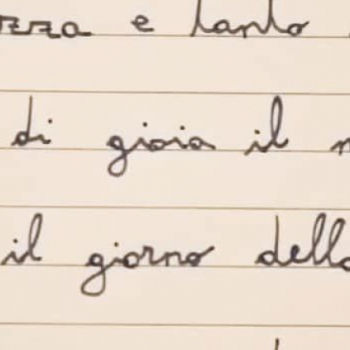 zza e tanto
di gioia il
il giorno dello